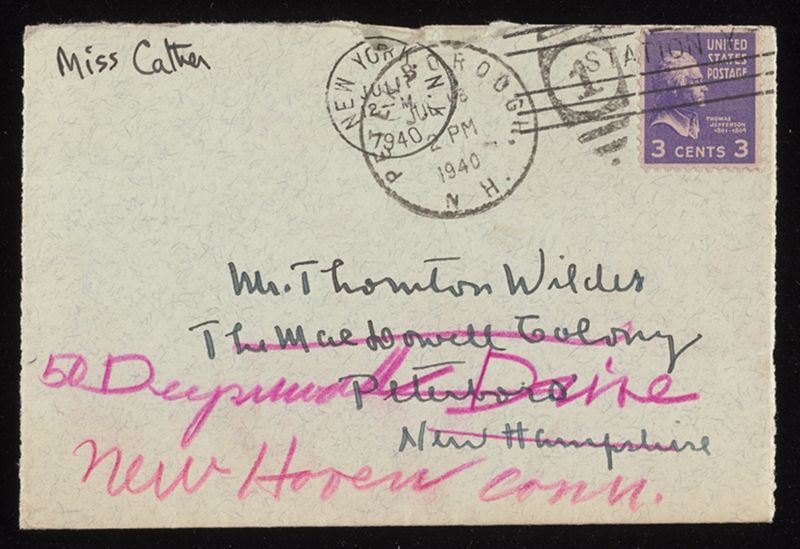 Miss Cather
NEW YORK, N.Y.
JUL
2 PM
1940
PETERBOROUGH. N.H.
JUL
2 PM
1940
STATION Y
1
UNITED
STATES
POSTAGE
THOMAS
JEFFERSON
1801-1809
3 CENTS 3
Mr. Thornton Wilder
The MacDowell Colony
Peterboro
New Hampshire
50 Deepwood Drive
New Haven Conn.